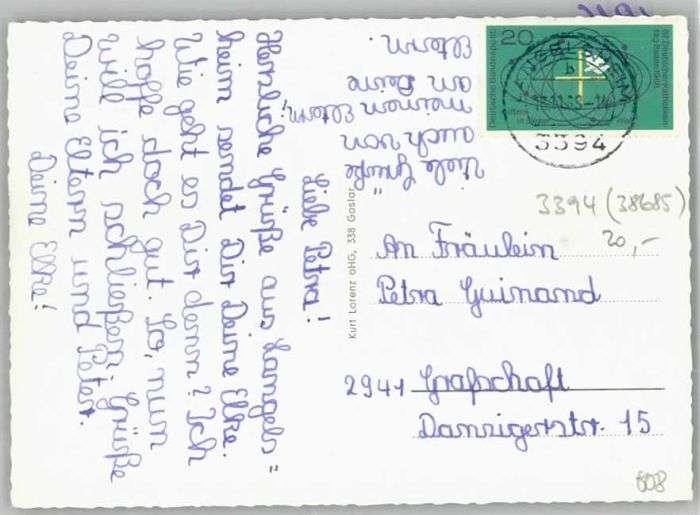 Liebe Petra!
Herzliche Grüße aus Langels=
heim sendet Dir Deine Elke.
Wie geht es Dir denn? Ich
hoffe doch gut. So, nun
will ich schließen; Grüße
Deine Eltern und Peter.
Deine Elke!
Viele Grüße
auch von
meinen Eltern,
an Deine
Eltern.
Kurt Lorenz oHG, 338 Goslar
20
Deutsche Bundespost
3394
3394 (38685)
20,-
An Fräulein
Petra Guinand
2941 Grafschaft
Danzigerstr. 15
608